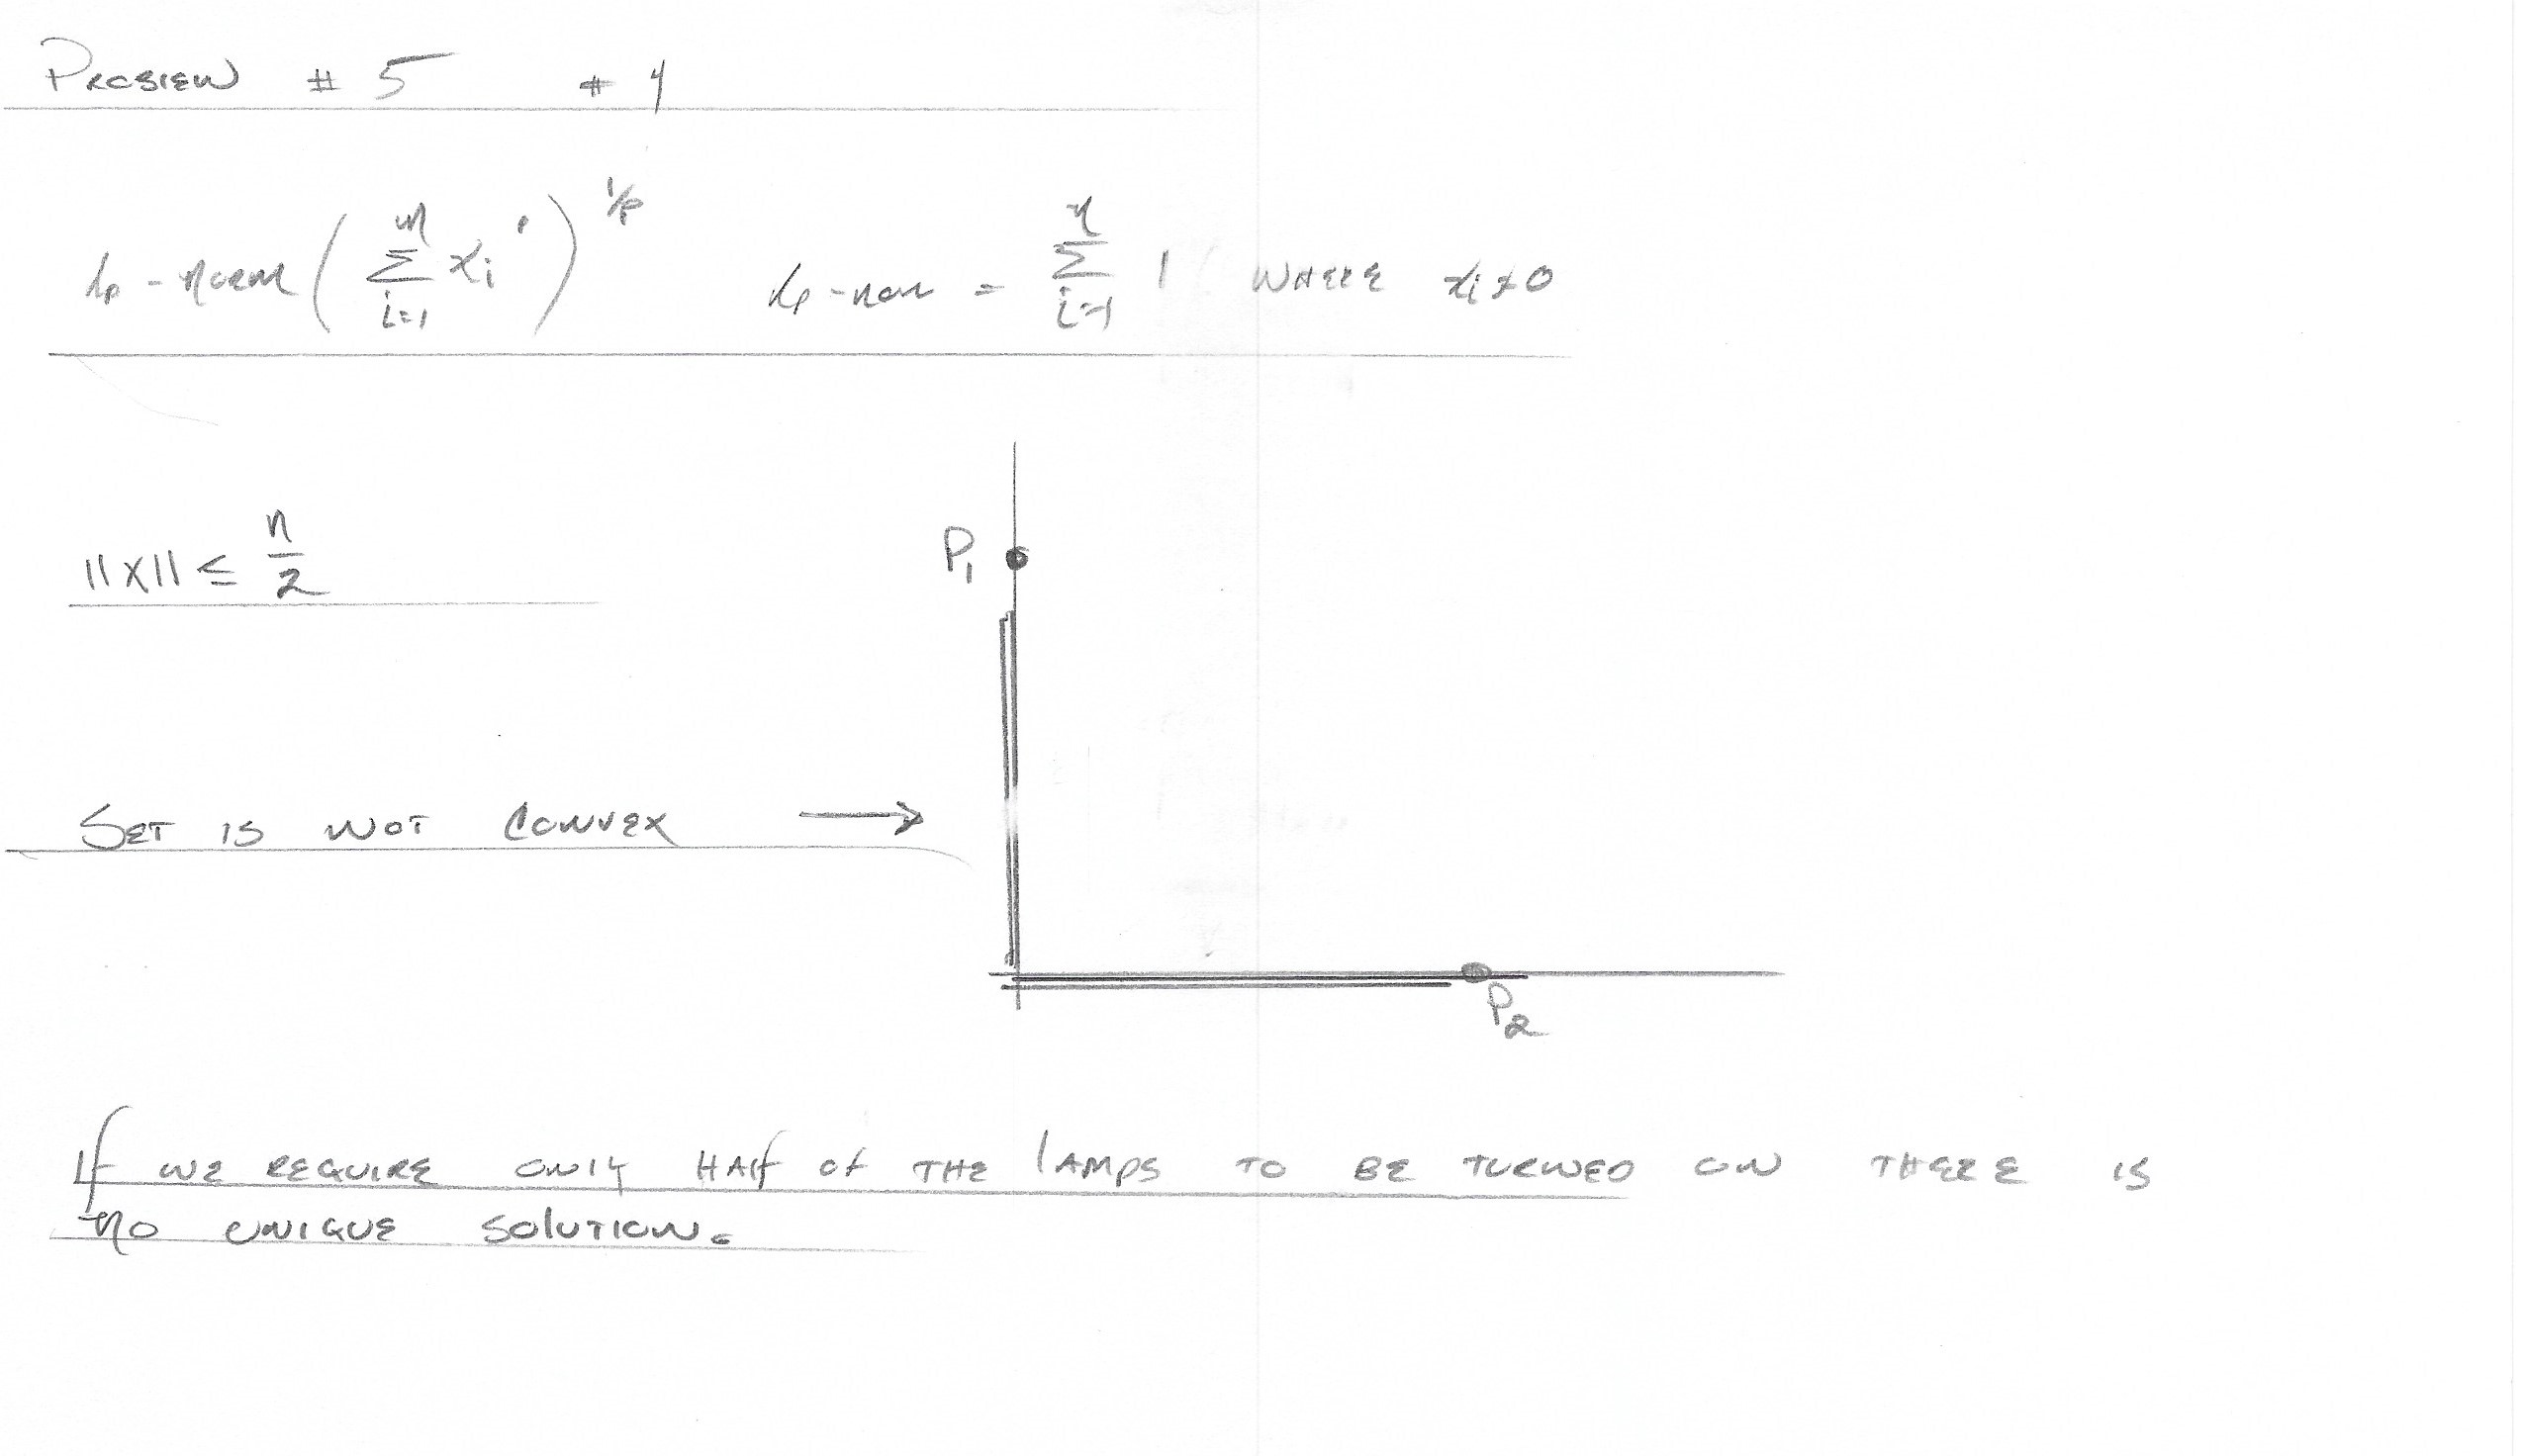 Problem # 5 # 4
lp-norm ( ∑ᵢ₌₁ⁿ xᵢᵖ )^1/p lp-nom = ∑ᵢ₌₁ⁿ 1 where xᵢ ≠ 0
||x|| ≤ n/2
P₁
Set is not convex →
P₂
If we require only half of the lamps to be turned on there is
no unique solution.